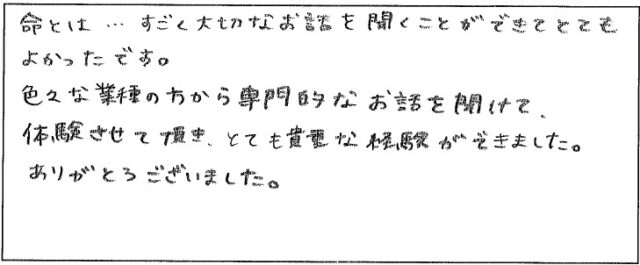 命とは…すごく大切なお話を聞くことができてとても
よかったです。
色々な業種の方から専門的なお話を聞けて、
体験させて頂き、とても貴重な経験ができました。
ありがとうございました。